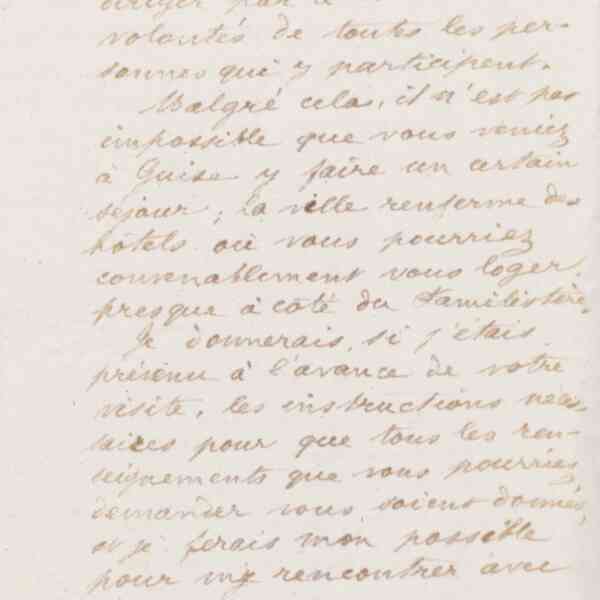 diriger par
volontés de toutes les per-
sonnes qui y participent.
Malgré cela, il n'est pas
impossible que vous veniez
à Guise y faire un certain
séjour ; la ville renferme des
hôtels où vous pourriez
convenablement vous loger
presque à côté du Familistère.
Je donnerais, si j'étais
prévenu à l'avance de votre
visite, les instructions néces-
saires pour que tous les ren-
seignements que vous pourriez
demander vous soient donnés,
et je ferais mon possible
pour m'y rencontrer avec